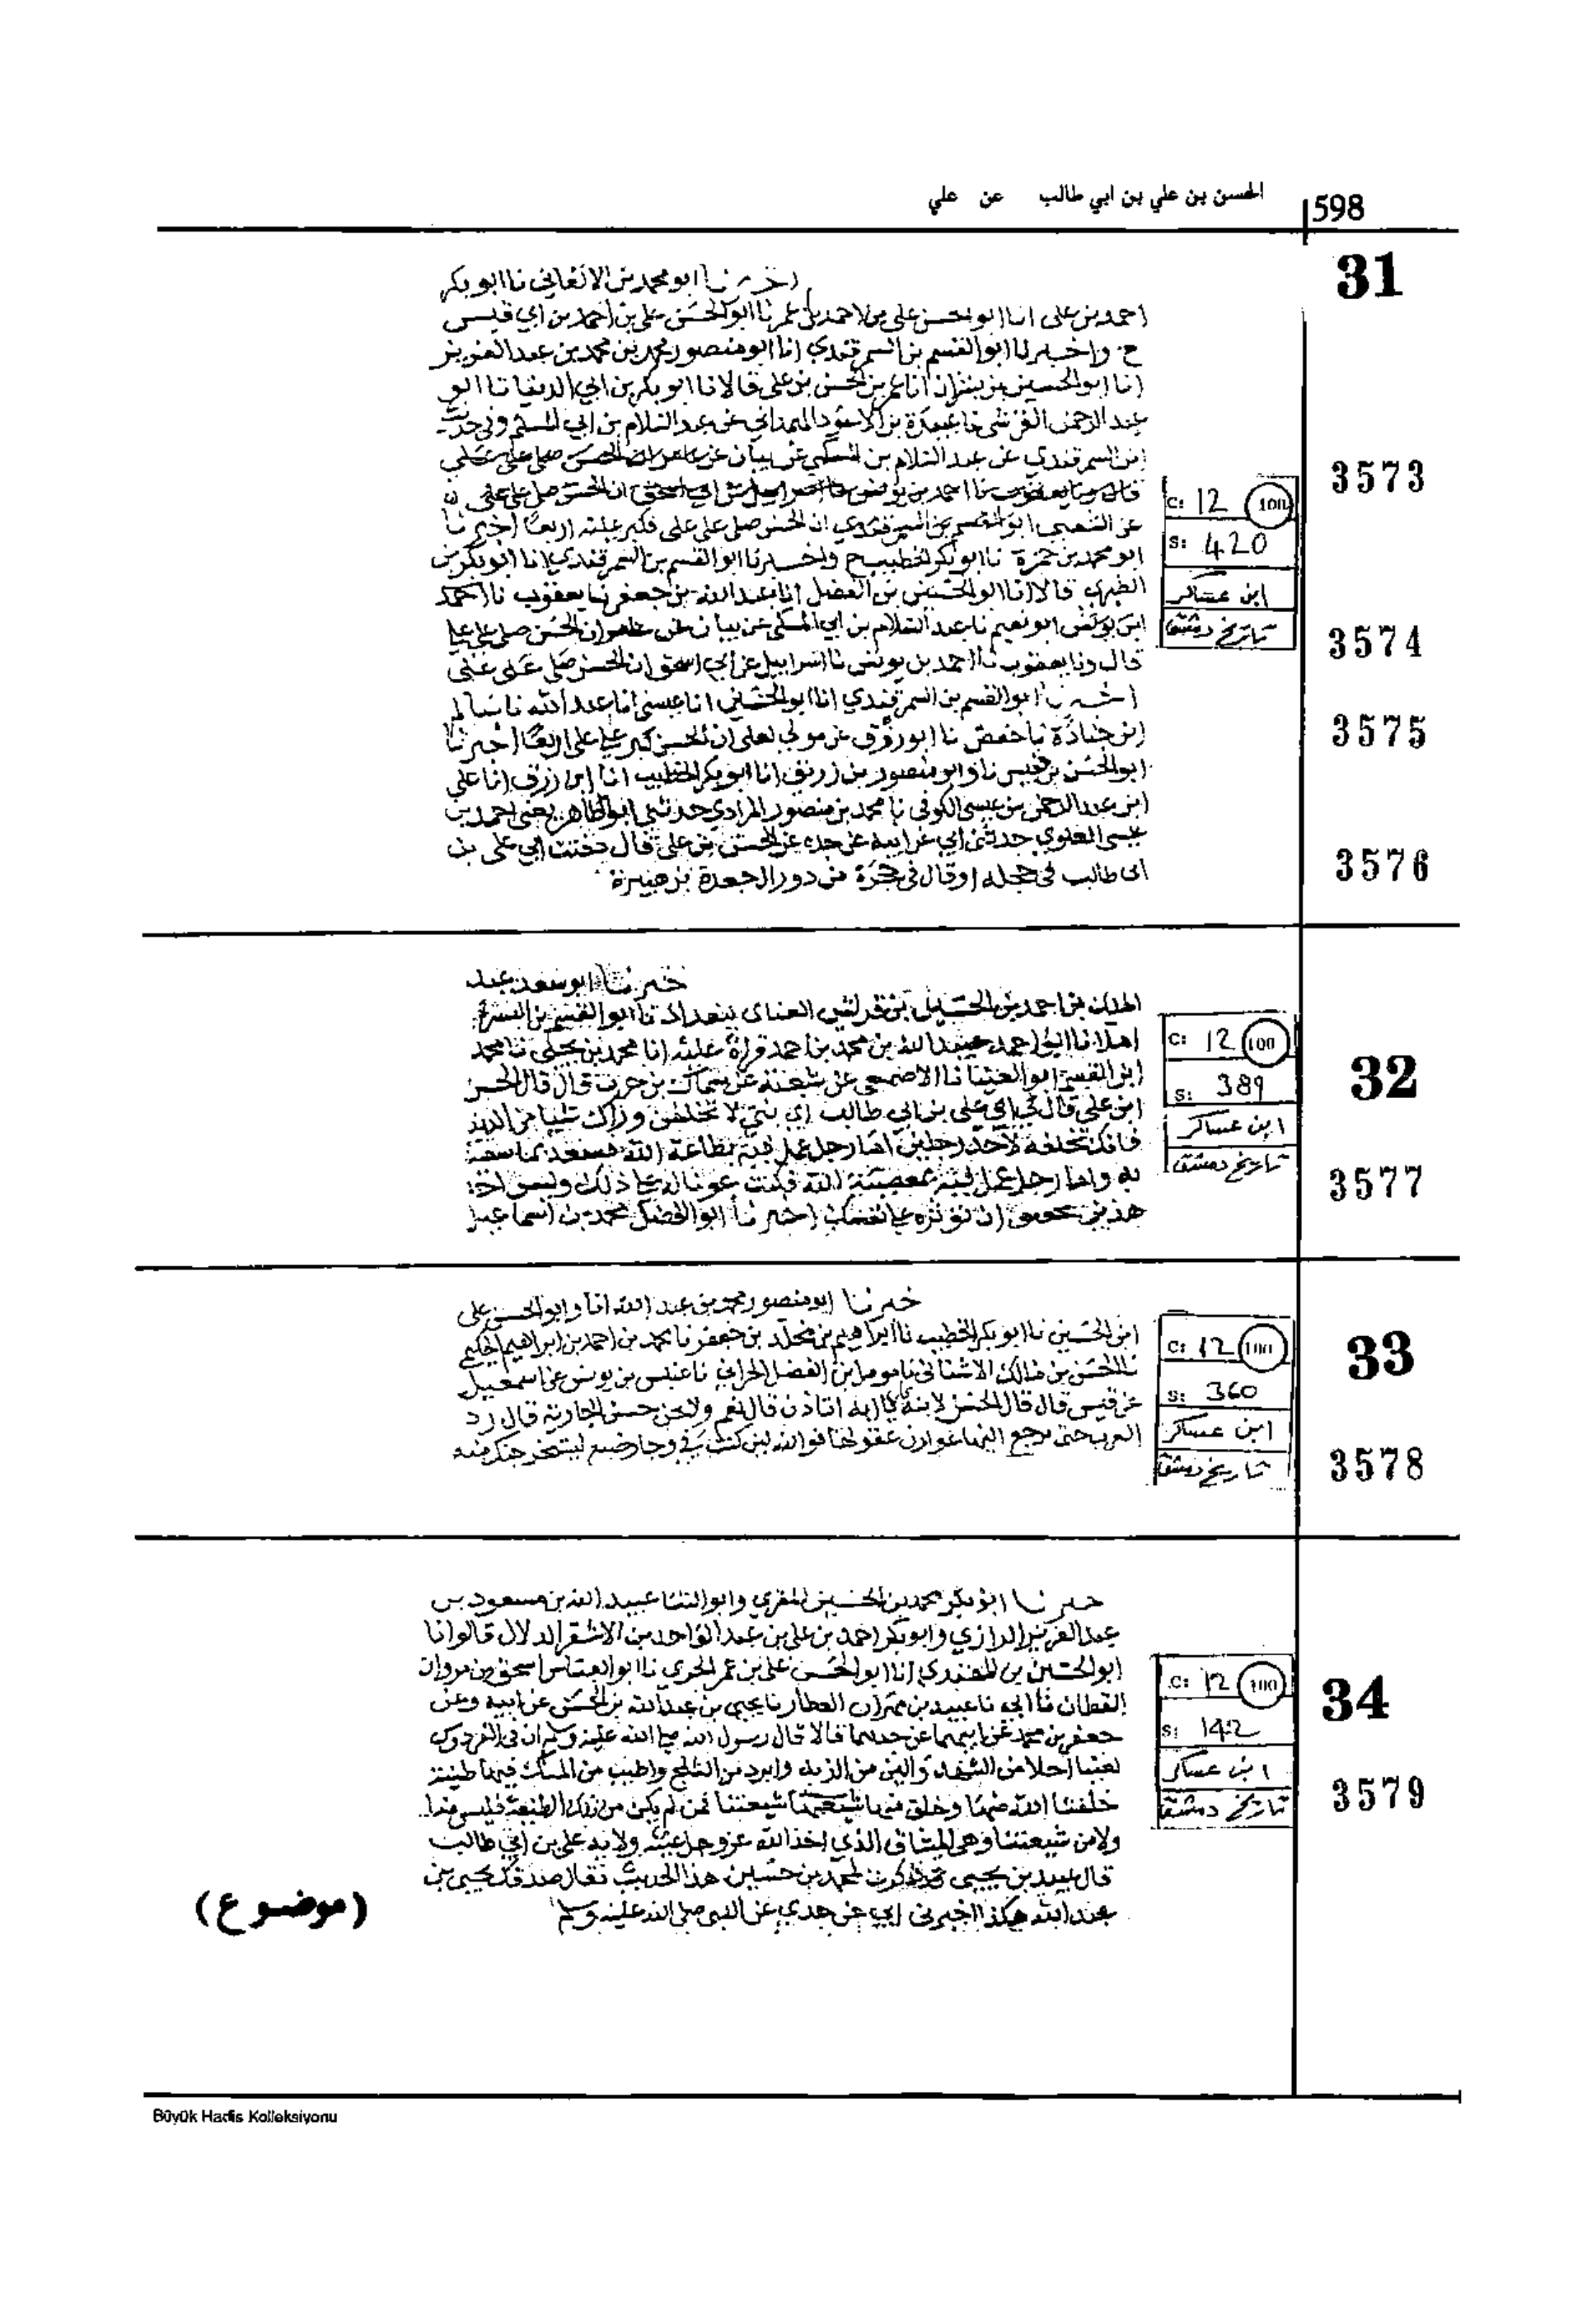 598
الحسن بن علي بن ابي طالب عن علي
31
ابو محمد بن الاكفاني نا ابو بكر
احمد بن علي انا ابو الحسن علي بن احمد بن عمر نا ابو الحسن علي بن احمد بن ابي قيس
ح واخبرنا ابو القسم بن السمرقندي انا ابو منصور محمد بن محمد بن عبد العزيز
انا ابو الحسين بن بشران انا عمر بن الحسن بن علي قالا نا ابو بكر بن ابي الدنيا نا ابو
عبد الرحمن القرشي نا بن الاسود الهمداني عن عبد السلام بن ابي المسلي وفي حديث
ابن السمرقندي عن عبد السلام بن المسلي عن بيان عن عامر ان الحسن صلى على علي
3573
عن الشعبي ابو القسم بن السمرقندي ان الحسن صلى على علي فكبر عليه اربعا اخبرنا
ابو محمد بن حمزة نا ابو بكر الخطيب ح واخبرنا ابو القسم بن السمرقندي انا ابو بكر بن
الطبري قالا انا ابو الحسين بن الفضل انا عبد الله بن جعفر نا يعقوب نا احمد
ابن يونس ابو نعيم نا عبد السلام بن ابي المسلي عن بيان عن عامر ان الحسن صلى على علي
3574
قال ونا يعقوب نا احمد بن يونس نا اسراييل عن ابي اسحق ان الحسن صلى على علي
ابو القسم بن السمرقندي انا ابو الحسين انا عيسى انا عبد الله نا سالم
3575
ابن جنادة نا حفص نا ابو روق عن مولى لعلي ان الحسن كبر على علي اربعا اخبرنا
ابو الحسن بن قبيس نا وابو منصور بن زريق انا ابو بكر الخطيب انا ابن رزق انا علي
ابن عبد الرحمن بن عيسى الكوفي نا محمد بن منصور المرادي حدثني ابو الطاهر يعني احمد بن
عيسى العلوي حدثني ابي عن ابيه عن جده عن الحسن بن علي قال دفنت ابي علي بن
3576
ابي طالب في حجله او قال في حجرة من دور ال جعدة بن هبيرة
C: 12 100
S: 420
ابن عساكر
تاريخ دمشق
32
خبرنا ابو سعد عبد
الملك بن احمد بن ببغداد نا ابو القسم بن البسري
املا نا ابو احمد عبيد الله بن محمد بن احمد قراة عليه انا محمد بن يحيى نا محمد
ابن القسم ابو العينا نا الاصمعي عن شعبة عن سماك بن حرب قال قال الحسن
ابن علي قال لي ابي علي بن ابي طالب اي بني لا تخلفن وراك شيا من الدنيا
فانك تخلفه لاحد رجلين اما رجل عمل فيه بطاعة الله فسعد بما شقيت
3577
به واما رجل عمل فيه بمعصية الله فكنت عونا له على ذلك وليس احد
هذين بحقيق ان تؤثره على نفسك اخبرنا ابو الفضل محمد بن اسماعيل
C: 12 100
S: 389
ابن عساكر
تاريخ دمشق
33
خبرنا ابو منصور محمد بن عبد الله انا وابو الحسن علي
ابن الحسين نا ابو بكر الخطيب نا ابراهيم بن مخلد بن جعفر نا محمد بن احمد بن ابراهيم الحكيمي
نا الحسن بن مالك الاشناني نا مومل ابن الفضل الحراني نا عيسى بن يونس عن اسمعيل
عن قيس قال قال الحسن لابنه قال نعم قال رد
3578
العرب حتى ترجع اليها عوازن عقولها فوالله لين كنت في وجار ضبع ليستخرجنك منه
C: 12 100
S: 360
ابن عساكر
تاريخ دمشق
34
خبرنا ابو بكر محمد بن الحسين المقري وابو الثنا عبيد الله بن مسعود بن
عبد العزيز الرازي وابو بكر احمد بن علي بن عبد الواحد بن الاشقر الدلال قالوا نا
ابو الحسين بن المهتدي انا ابو الحسن علي بن عمر الحربي نا ابو العباس اسحق بن مروان
القطان نا ابي نا عبيد بن مهران العطار نا يحيى بن عبد الله بن الحسن عن ابيه وعن
جعفر بن محمد عن ابيهما عن جدهما قالا قال رسول الله صلى الله عليه وسلم ان في الفردوس
لعينا احلا من الشهد والين من الزبد وابرد من الثلج واطيب من المسك فيها طينة
3579
خلقنا الله منها وخلق منها شيعتنا فمن لم يكن من تلك الطينة فليس منا
ولا من شيعتنا وهي الميثاق الذي اخذ الله عز وجل عليه ولاية علي بن ابي طالب
قال عبيد بن يحيى فذكرت لمحمد بن حسين هذا الحديث فقال صدقك يحيى بن
عبد الله هكذا اخبرني ابي عن جدي عن النبي صلى الله عليه وسلم
(موضوع)
C: 12 100
S: 142
ابن عساكر
تاريخ دمشق
Büyük Hadis Kolleksiyonu